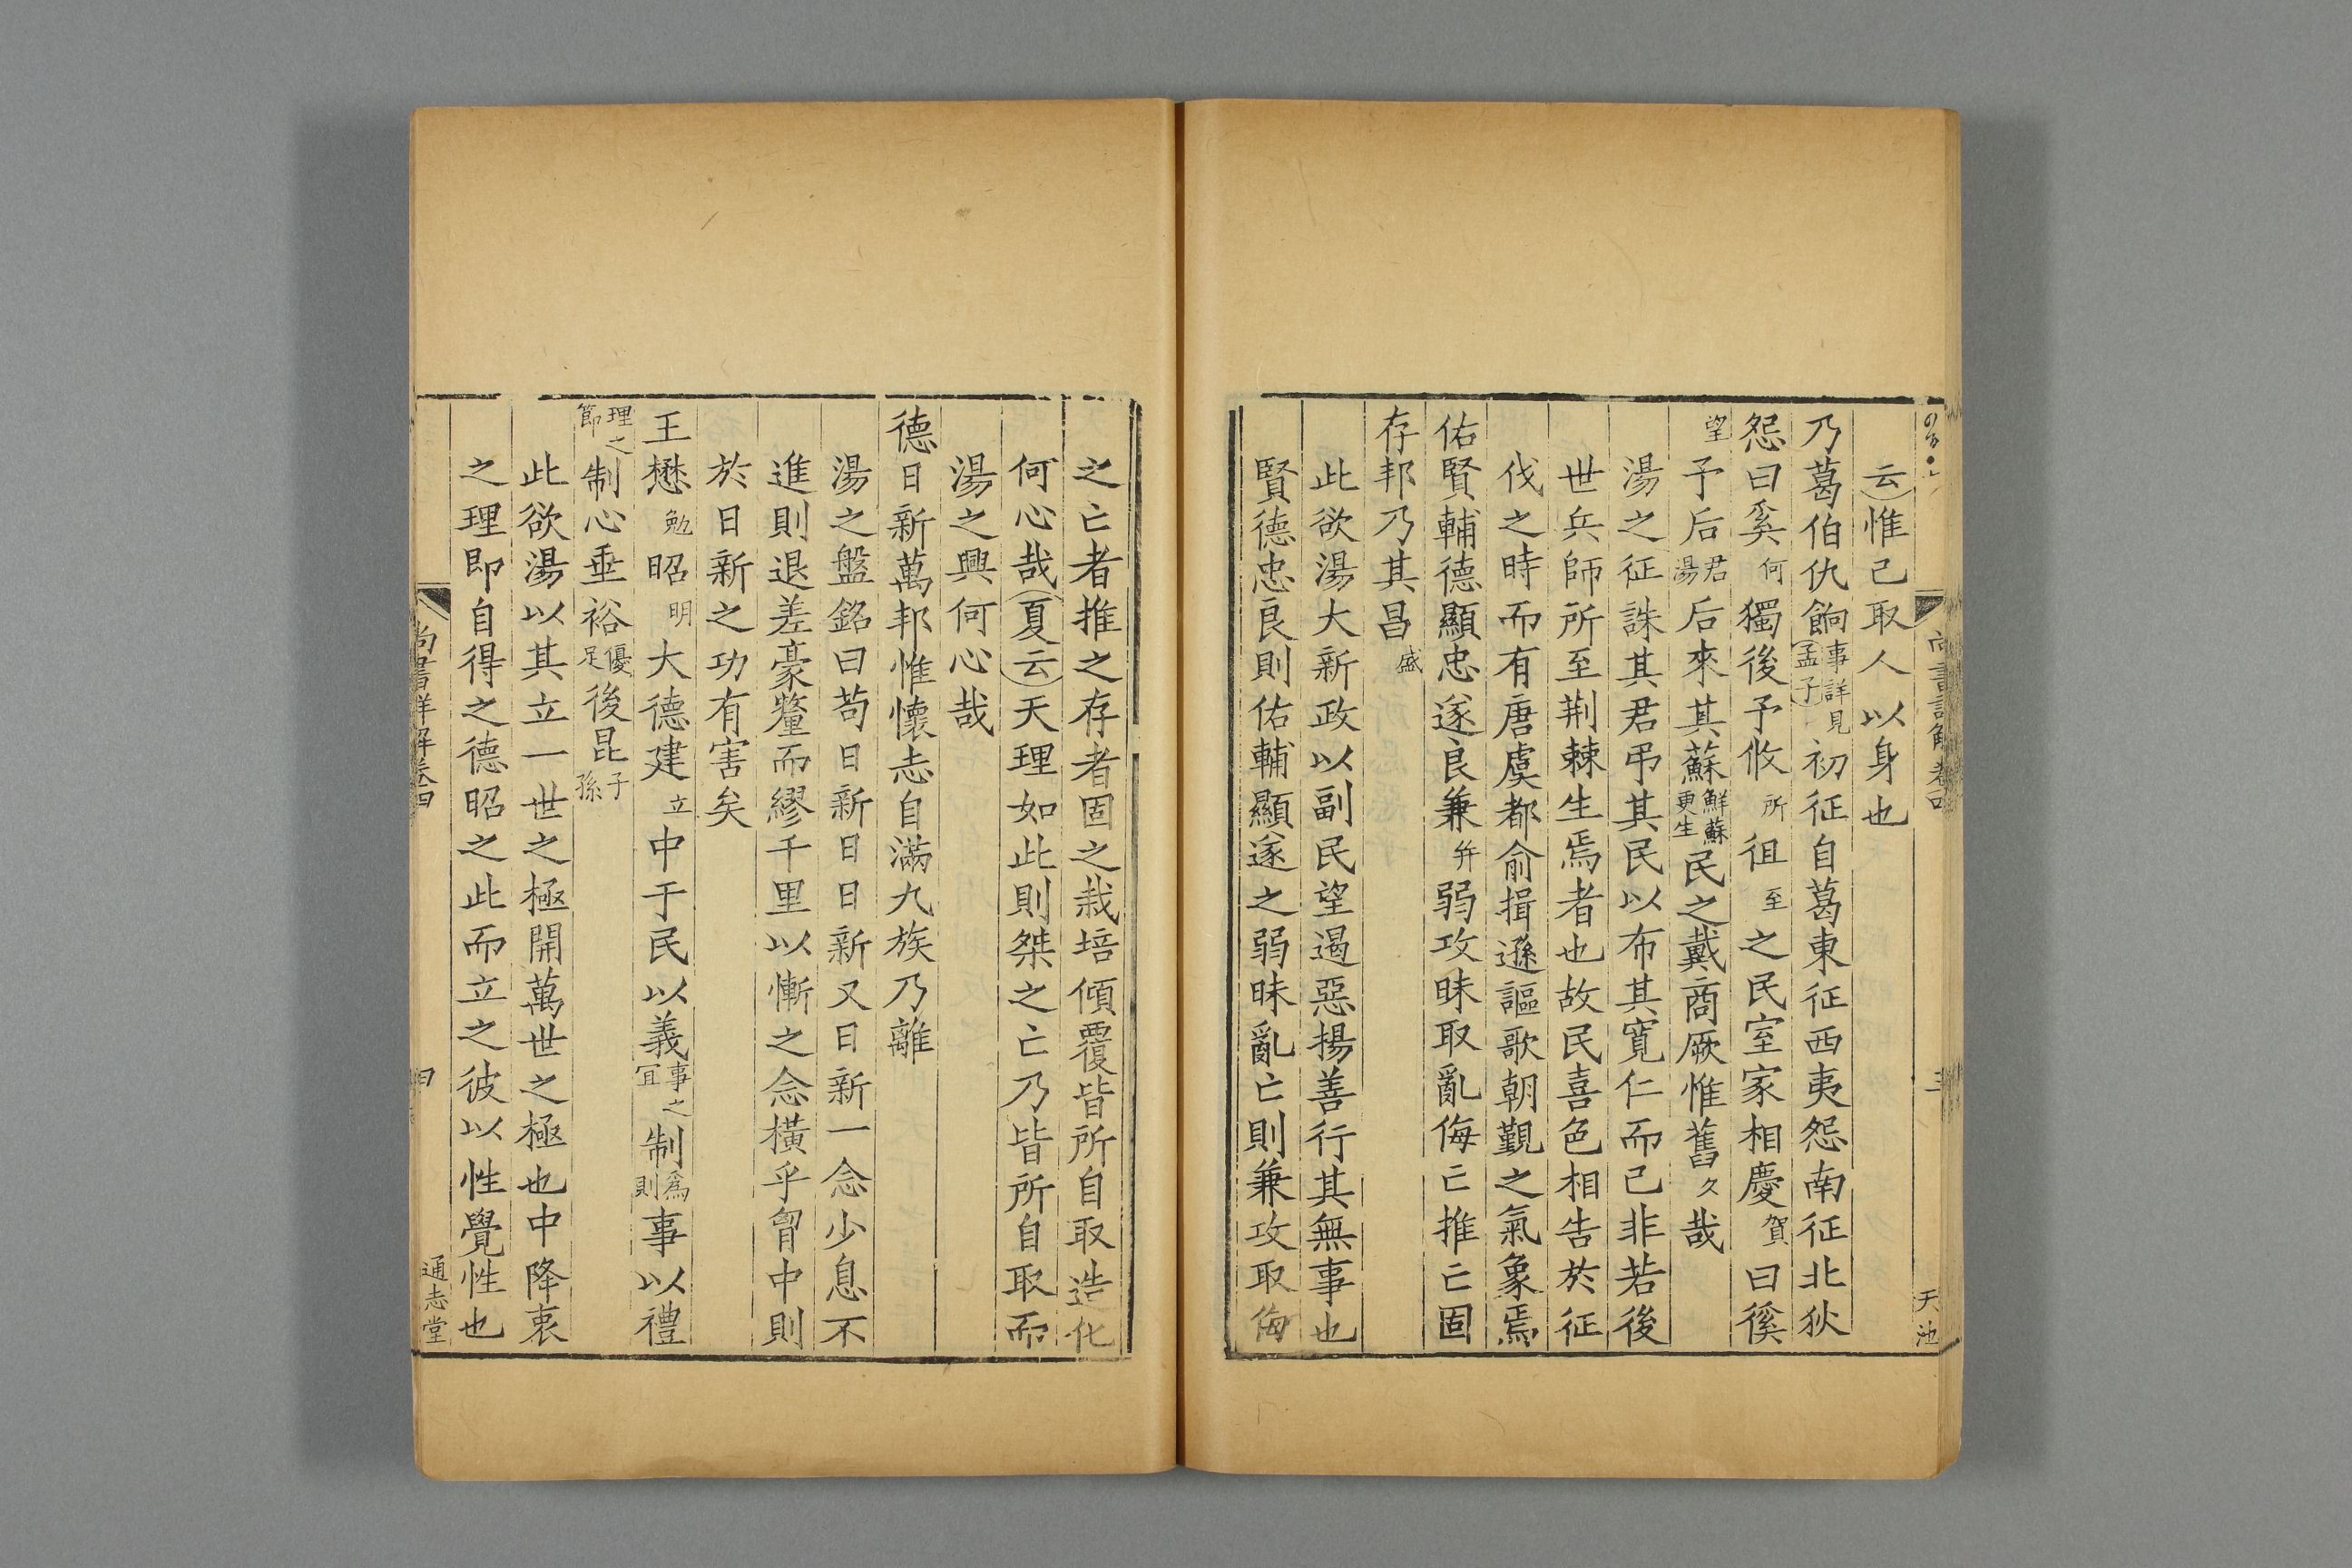 云惟己取人以身也
乃葛伯仇餉事詳見孟子初征自葛東征西夷怨南征北狄
怨曰奚何獨後予攸所徂至之民室家相慶賀曰徯
望予后君湯后來其蘇鮮蘇更生民之戴商厥惟舊久哉
湯之征誅其君弔其民以布其寬仁而已非若後
世兵師所至荆棘生焉者也故民喜色相告於征
伐之時而有唐虞都俞揖遜謳歌朝覲之氣象焉
佑賢輔德顯忠遂良兼并弱攻昧取亂侮亡推亡固
存邦乃其昌盛
此欲湯大新政以副民望遏惡揚善行其無事也
賢德忠良則佑輔顯遂之弱昧亂亡則兼攻取侮
尚書詳解卷四
三
天池
之亡者推之存者固之栽培傾覆皆所自取造化
何心哉夏云天理如此則桀之亡乃皆所自取而
湯之興何心哉
德日新萬邦惟懷志自滿九族乃離
湯之盤銘曰苟日新日日新又日新一念少息不
進則退差豪釐而繆千里以慚之念橫乎胷中則
於日新之功有害矣
王懋勉昭明大德建立中于民以義事之宜制爲則事以禮
理之節制心垂裕優足後昆子孫
此欲湯以其立一世之極開萬世之極也中降衷
之理即自得之德昭之此而立之彼以性覺性也
尚書詳解卷四
四
通志堂